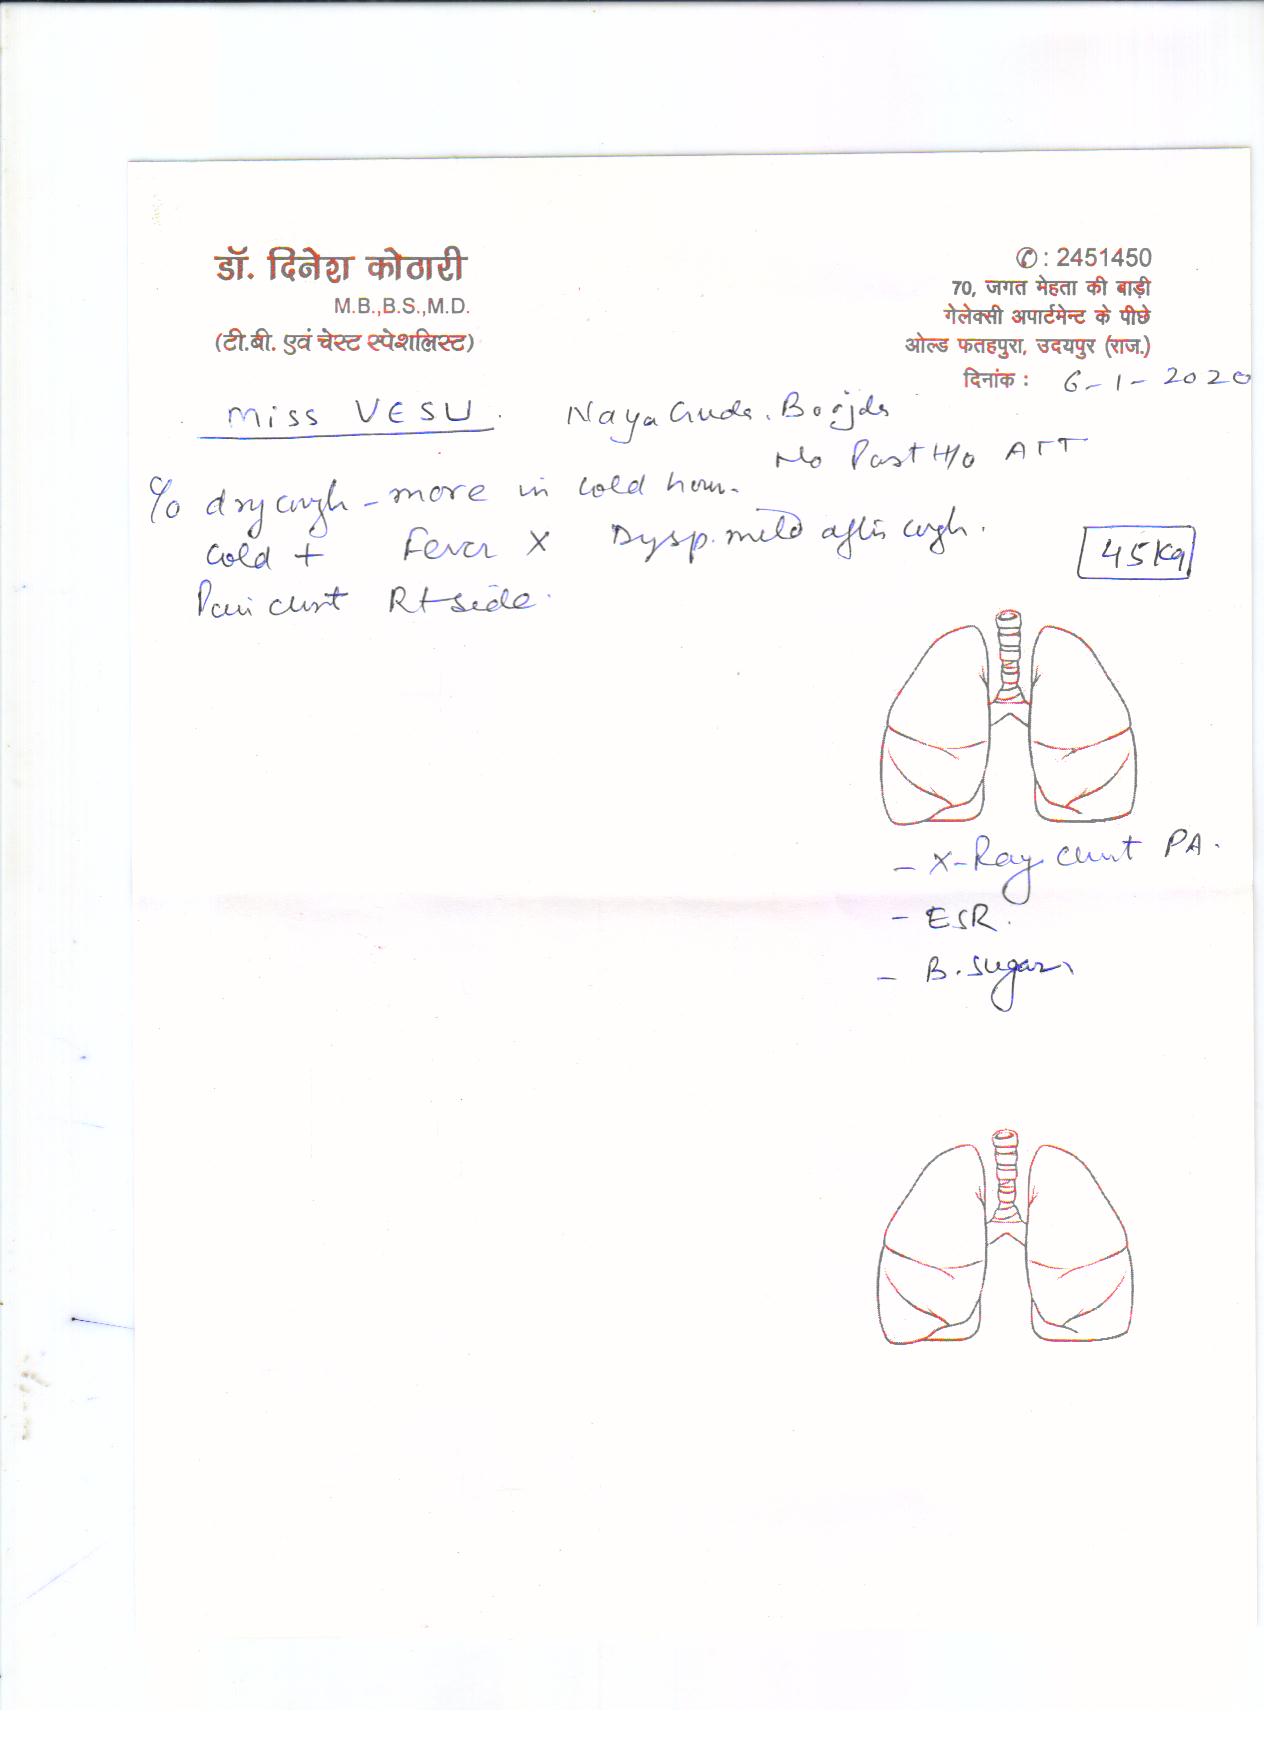 डॉ. दिनेश कोठारी
M.B.,B.S.,M.D.
(टी.बी. एवं चेस्ट स्पेशलिस्ट)
✆ : 2451450
70, जगत मेहता की बाड़ी
गेलेक्सी अपार्टमेन्ट के पीछे
ओल्ड फतहपुरा, उदयपुर (राज.)
दिनांक : 6-1-2020
Miss VESU. Naya Guda.
No Past H/o ATT
C/o dry cough - more in cold hour.
Cold + Fever X Dysp. mild after cough.
45 Kg
Pain chest Rt side.
- X-Ray chest PA.
- ESR.
- B. Sugar